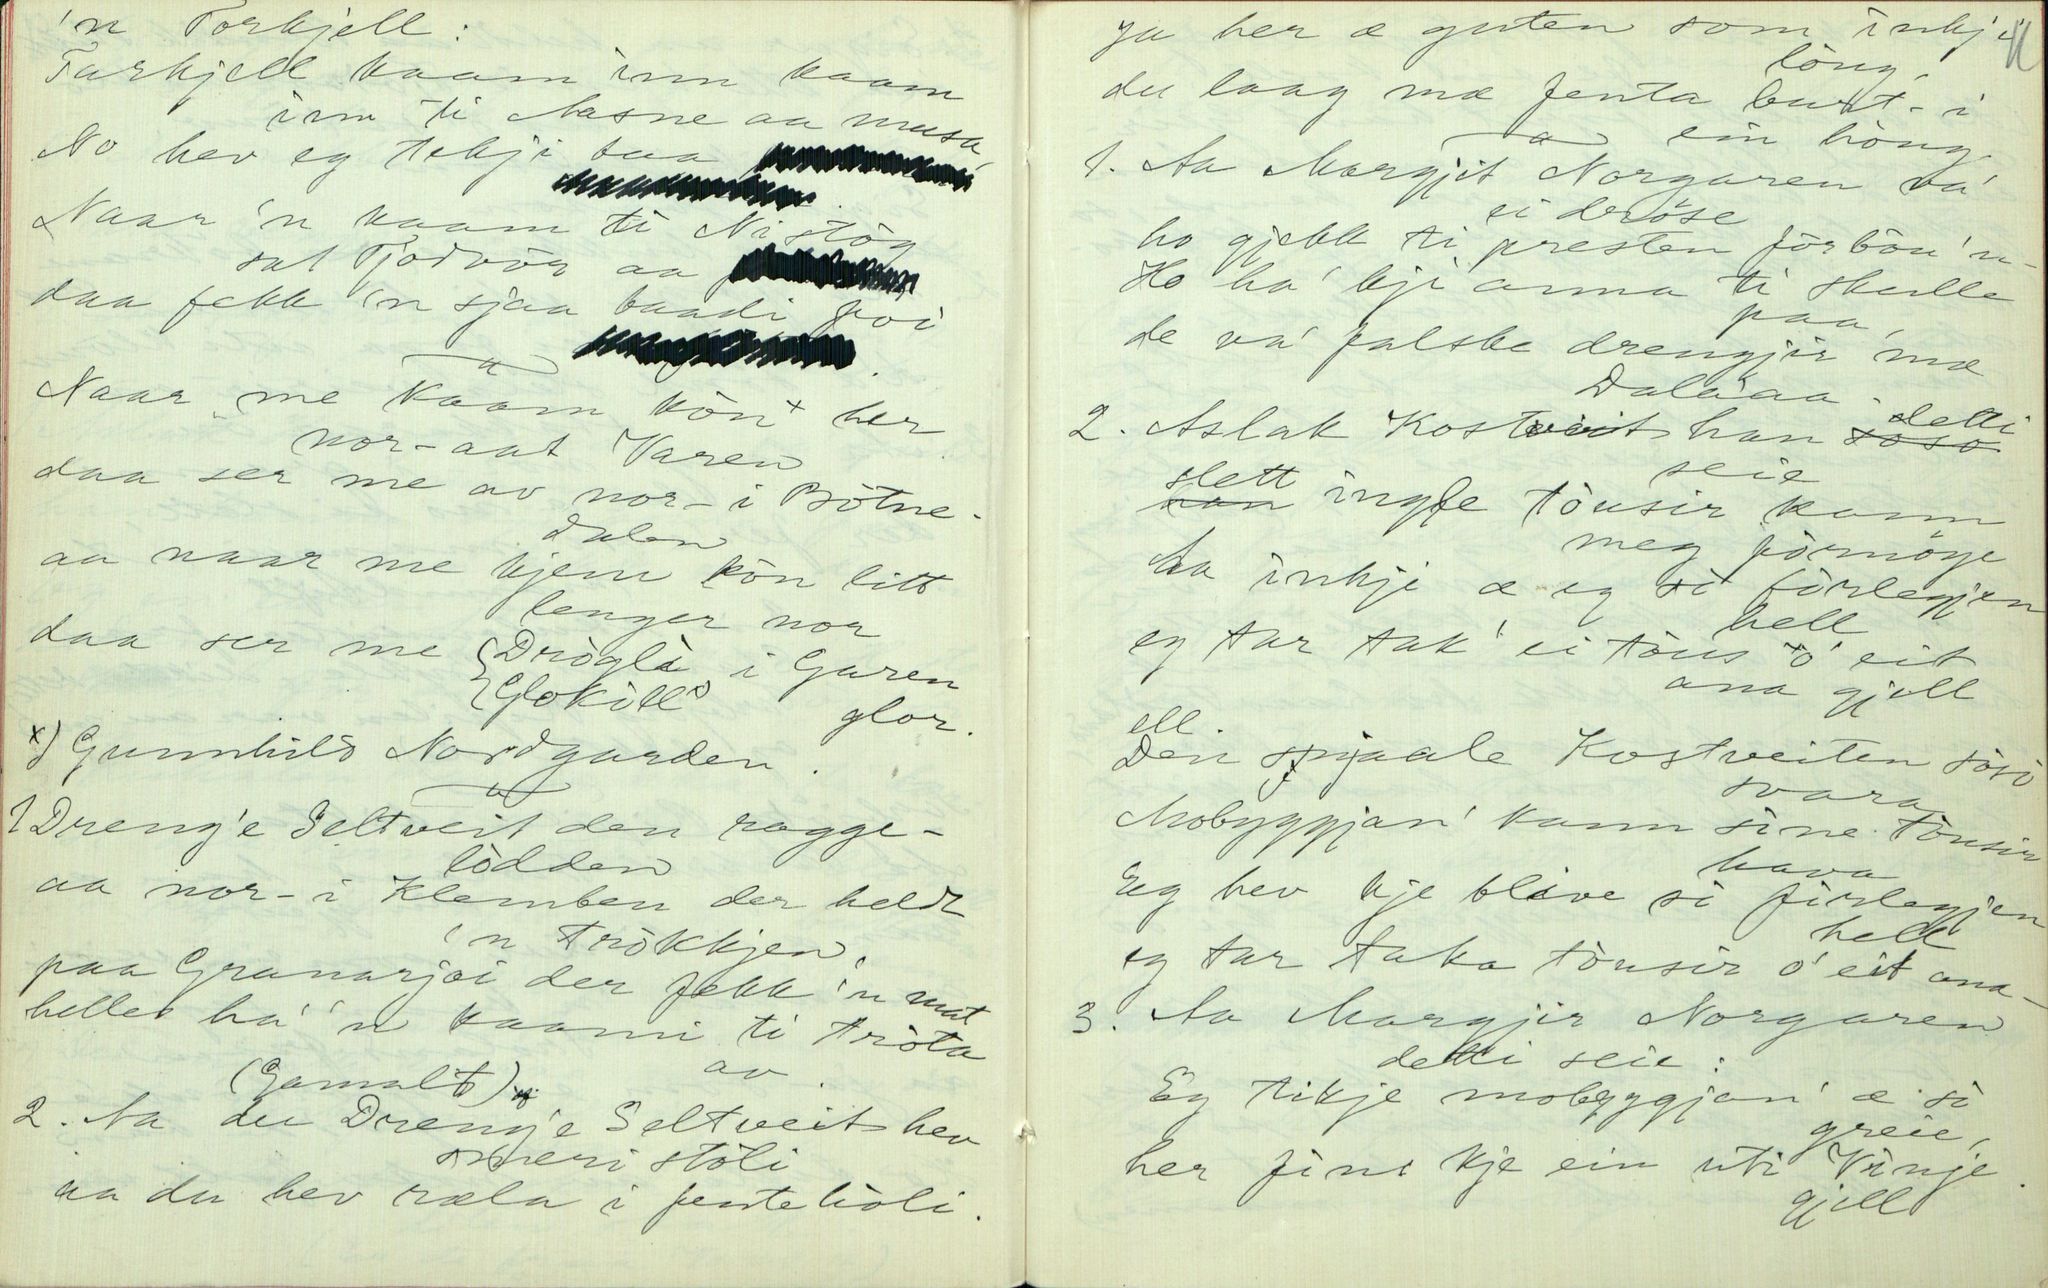 'n Torkjell:
Tarkjell kaam inn kaam
inn ti Aasne aa musa,
No hev eg tekji taa
Naar 'n kaam ti Nistòg
sat Tjodvör aa
daa fekk 'n sjaa baadi poi
Naar me kaam kön x her
nor-aat Varen
daa ser me av nor-i Bötne-
dalen
aa naar me kjem kön litt
lenger nor
daa ser me {Dròglì i Garen
{Glokill" glor.
x) Gunnhild Nordgarden.
1 Dreng'e Seltveit den ragge-
lòdden
aa nor-i Klemben der heldt
'n tròkkjen,
paa Granarjoi der fekk 'n mat
helles ha' 'n kaami ti tròta
av.
(Gamalt)
2. Aa du Dreng'e Seltveit hev
smeri stöli
aa du hev ræla i jentehòli.
Ja her æ guten som inkji
löng,
du laag mæ jenta burt-i
ein höng
1. Aa Margjit Norgaren va'
ei deröse
ho gjekk ti presten förbön'n-
Ho ha' kji anna ti skulle
paa,
de va' falske drengjir mæ
Dalaaa.
2. Aslak Kostveit han detti
seie
slett ingje tòusir kann
meg förmöge
Aa inkji æ eg sì förlegjen
hell
eg tar tak' ei tòus ò' eit
ana gjell
ell.
Den spjaale Kostveiten sòsò
svara
Mobyggjan' kann sine tòusir
hava
Eg hev kje blive sì förlegjen
hell
eg tar taka tòusir ò' eit ana-
3. Aa Margjir Norgaren
detti seie:
Eg tikje mobyggjan' æ sì
greie,
her fins kje ein uti Vinje
gjell.